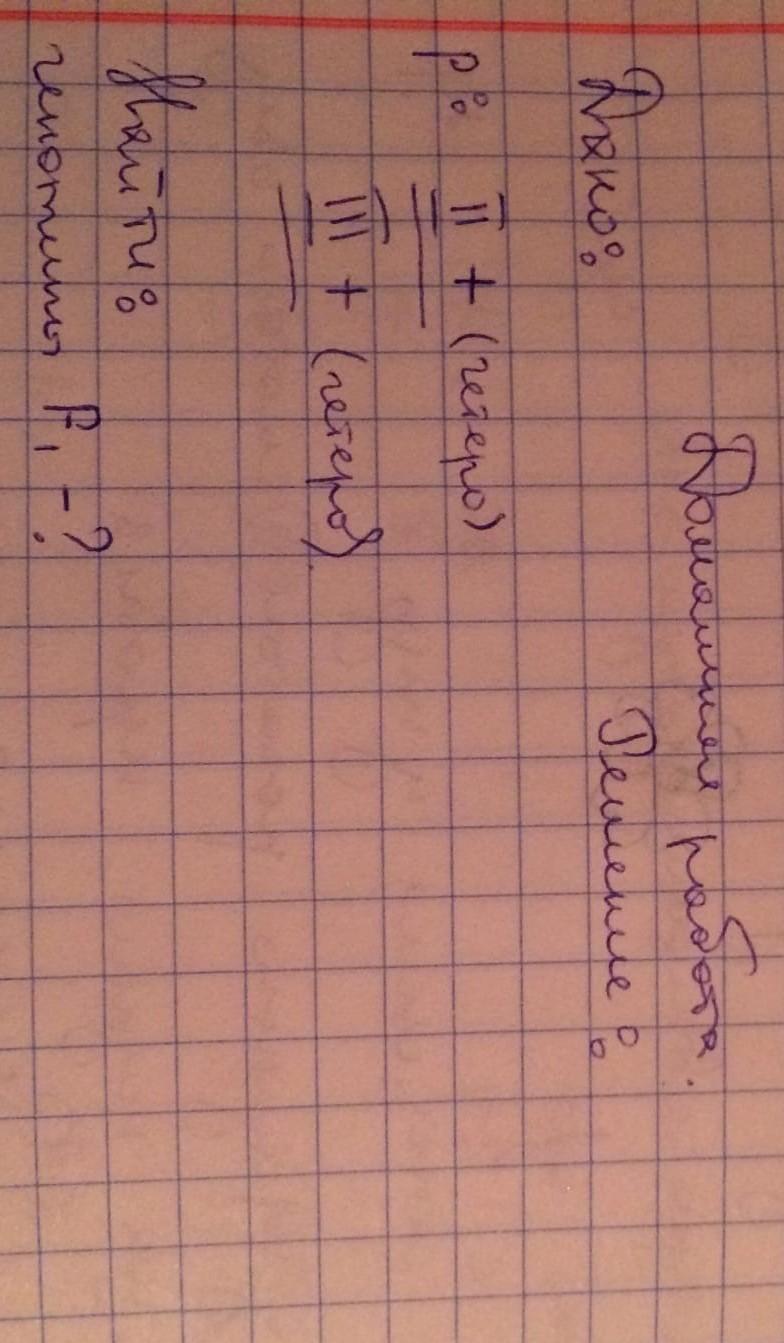 Домашняя работа.
Дано:
Решение:
P: II + (гетеро)
III + (гетеро)
Найти:
генотипы F₁ - ?